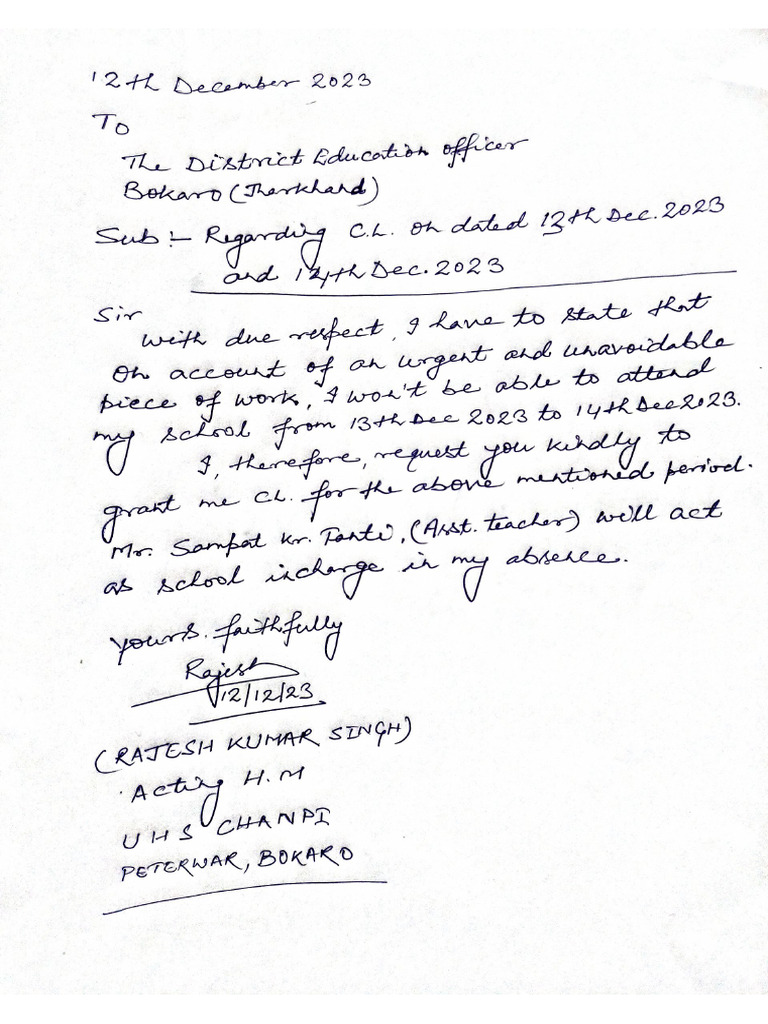 12th December 2023
To
The District Education officer
Bokaro (Jharkhand)
Sub :- Regarding C.L. on dated 13th Dec. 2023
and 14th Dec. 2023
Sir
With due respect, I have to state that
on account of an urgent and unavoidable
piece of work, I won't be able to attend
my school from 13th Dec 2023 to 14th Dec 2023.
I, therefore, request you kindly to
grant me CL. for the above mentioned period.
Mr. Sampat Kr. Tanti, (Asst. teacher) will act
as school incharge in my absence.
Yours. faithfully
Rajesh
12/12/23
(RAJESH KUMAR SINGH)
Acting H.M
UHS CHANPI
PETERWAR, BOKARO